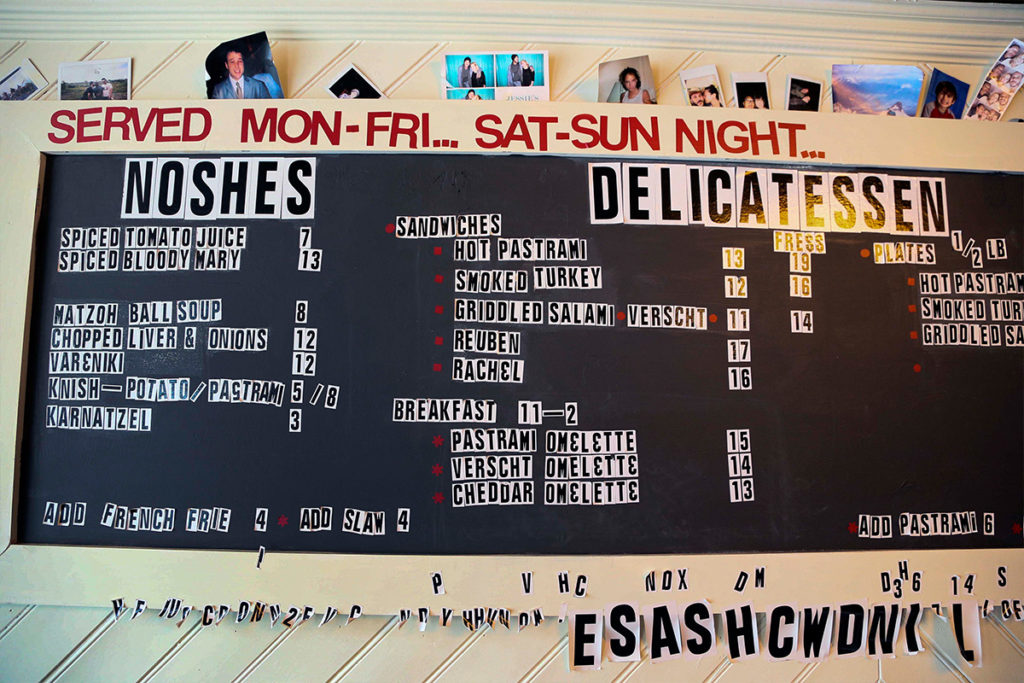 JESSIE'S
SERVED MON-FRI... SAT-SUN NIGHT...
NOSHES
SPICED TOMATO JUICE 7
SPICED BLOODY MARY 13
MATZOH BALL SOUP 8
CHOPPED LIVER & ONIONS 12
VARENIKI 12
KNISH—POTATO/PASTRAMI 5/8
KARNATZEL 3
ADD FRENCH FRIE 4 * ADD SLAW 4
DELICATESSEN
• SANDWICHES FRESS
HOT PASTRAMI 13 19
SMOKED TURKEY 12 16
GRIDDLED SALAMI • VERSCHT • 11 14
REUBEN 17
RACHEL 16
BREAKFAST 11—2
* PASTRAMI OMELETTE 15
* VERSCHT OMELETTE 14
* CHEDDAR OMELETTE 13
• PLATES 1/2 LB
HOT PASTRAM
SMOKED TUR
GRIDDLED SA
* ADD PASTRAMI 6 *
P V HC NOX DM D3H6 14 S
ESASHCWDN